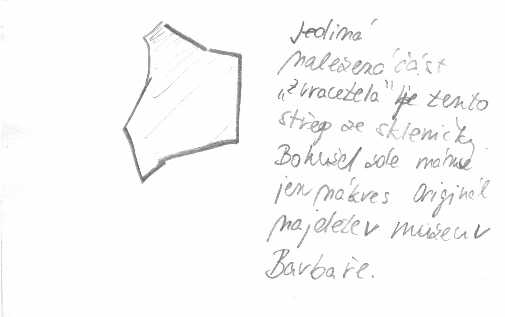 Jediná
nalezená část
„Zvracetela" je tento
střep ze skleničky
Bohužel zde máme
jen nákres Originál
najdete v muzeu v
Barbaře.